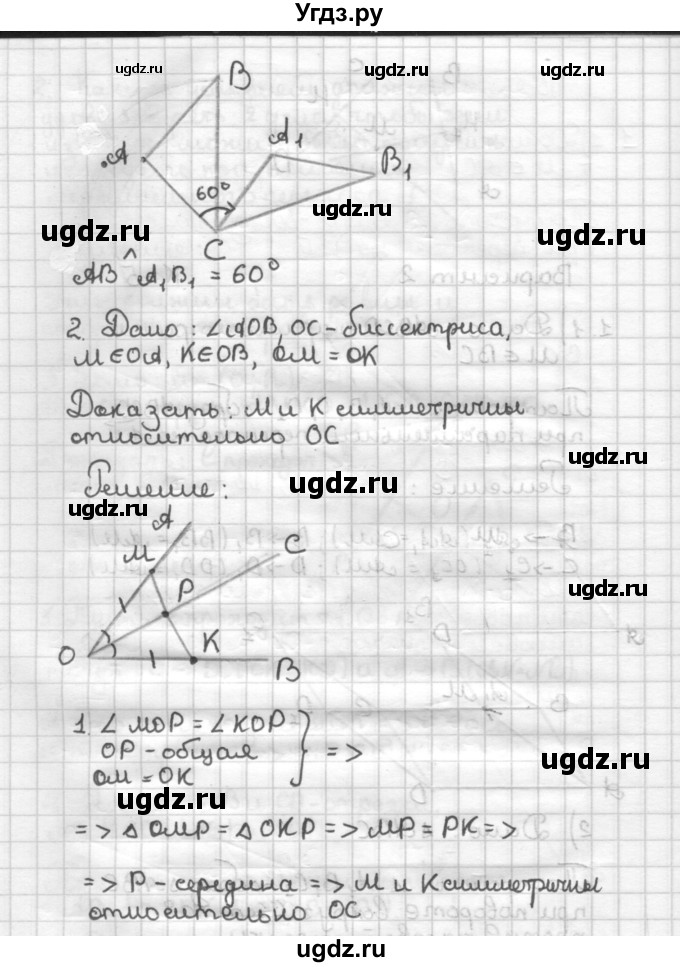 Угдз.ру
ugdz.ru ugdz.ru ugdz.ru
B
A A₁
B₁
60°
ugdz.ru
ugdz.ru
C
AB^A₁B₁ = 60°
2. Дано: ∠AOB, OC - биссектриса,
M∈OA, K∈OB, OM = OK
Доказать: M и K симметричны
относительно OC
ugdz.ru
Решение:
ugdz.ru
ugdz.ru
A
M C
P
ugdz.ru
K
O B
1. ∠MOP = ∠KOP
OP - общая } =>
OM = OK
ugdz.ru
ugdz.ru
=> △OMP = △OKP => MP = PK =>
=> P - середина => M и K симметричны
относительно OC
ugdz.ru